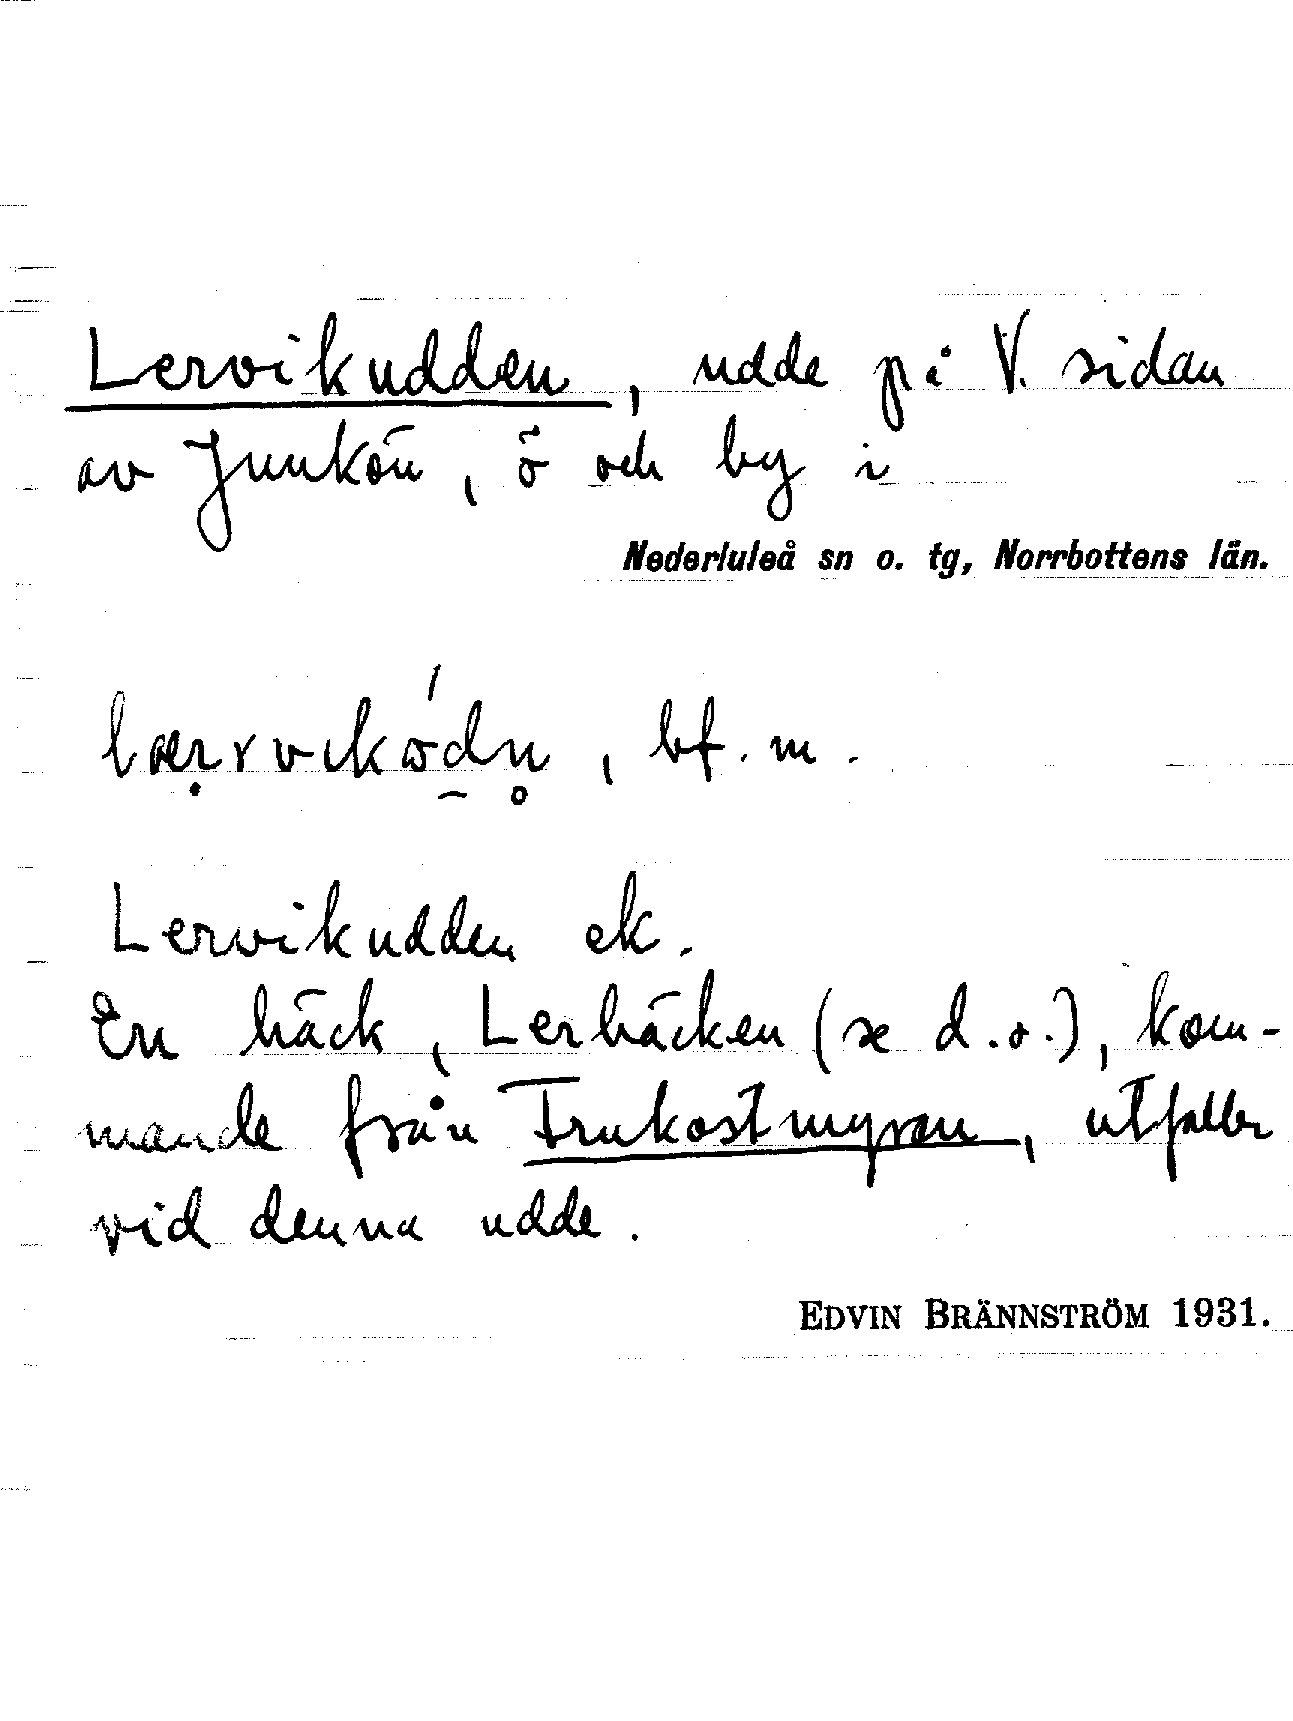 Lervikudden, udde på V. sidan
av Junkön, ö och by i
Nederluleå sn o. tg, Norrbottens län.
bf. m.
Lervikudden ek.
En bäck, Lerbäcken (se d.o.), kom-
mande från Frukostmyran, utfaller
vid denna udde.
EDVIN BRÄNNSTRÖM 1931.